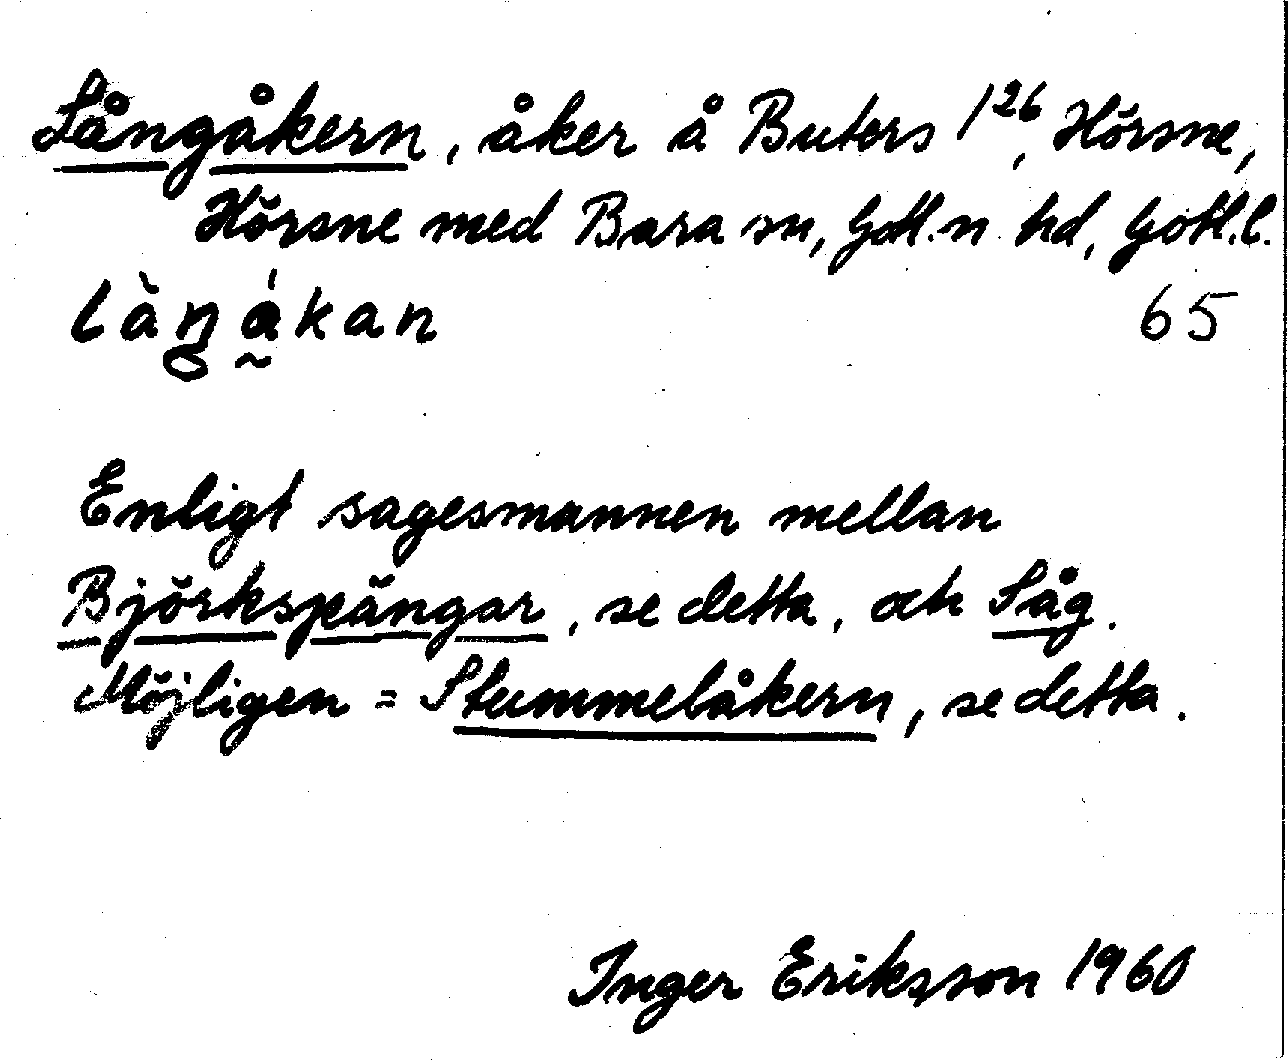 Långåkern, åker å Buters 1²⁶, Hörsne,
Hörsne med Bara sn, Gotl.n hd, Gotl.l.
làŋákan 65
Enligt sagesmannen mellan
Björkspängar, se detta, och Såg.
Möjligen = Stummelåkern, se detta.
Inger Eriksson 1960